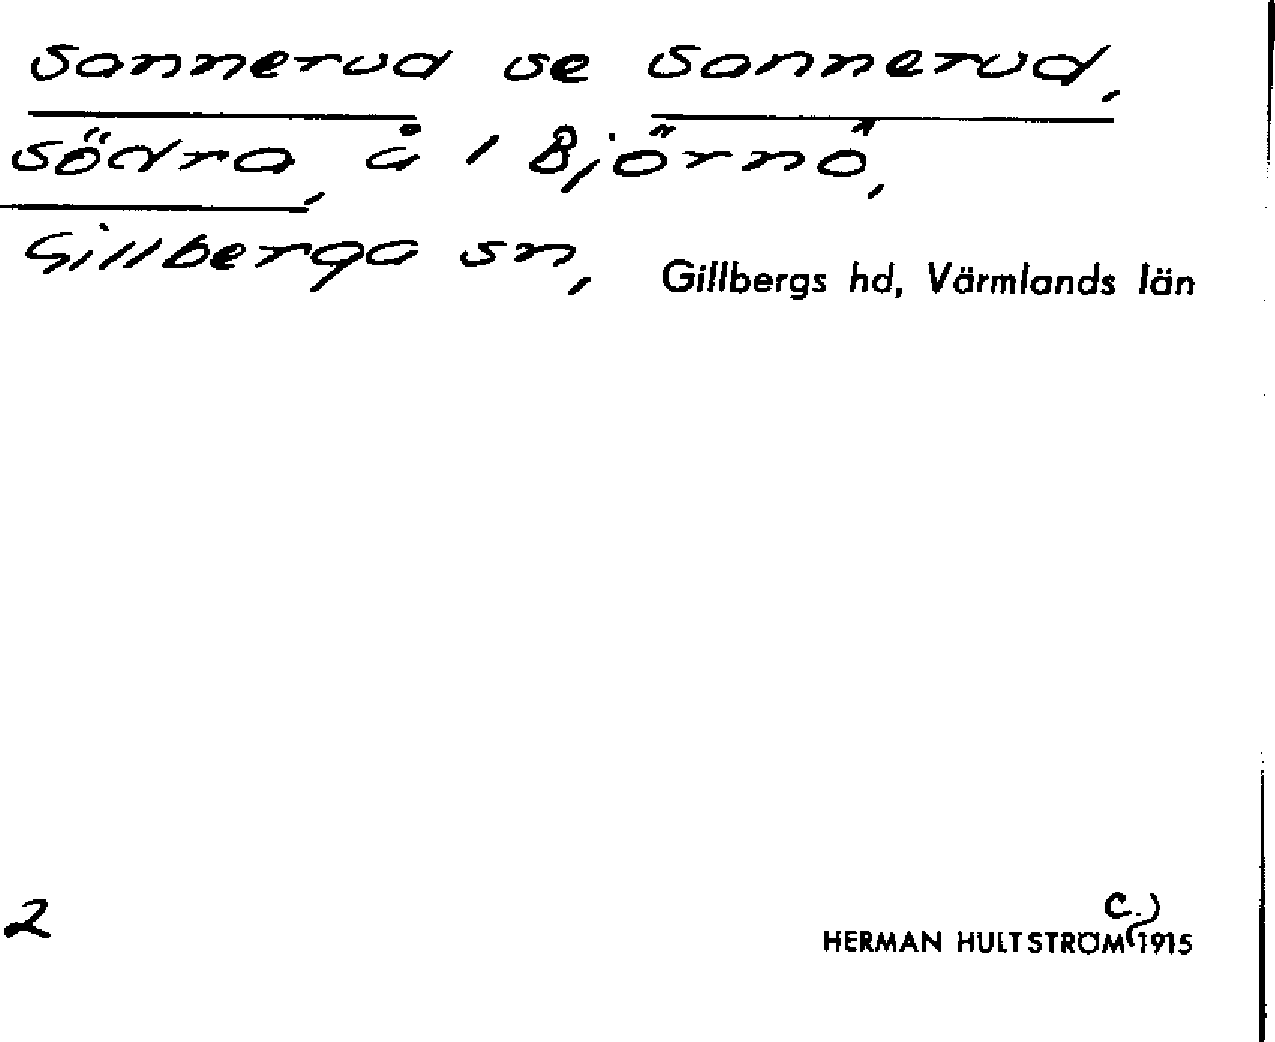 Sannerud se Sannerud,
södra, å 1 Björnö,
Gillberga sn, Gillbergs hd, Värmlands län
2
c.)
HERMAN HULTSTRÖM (1915